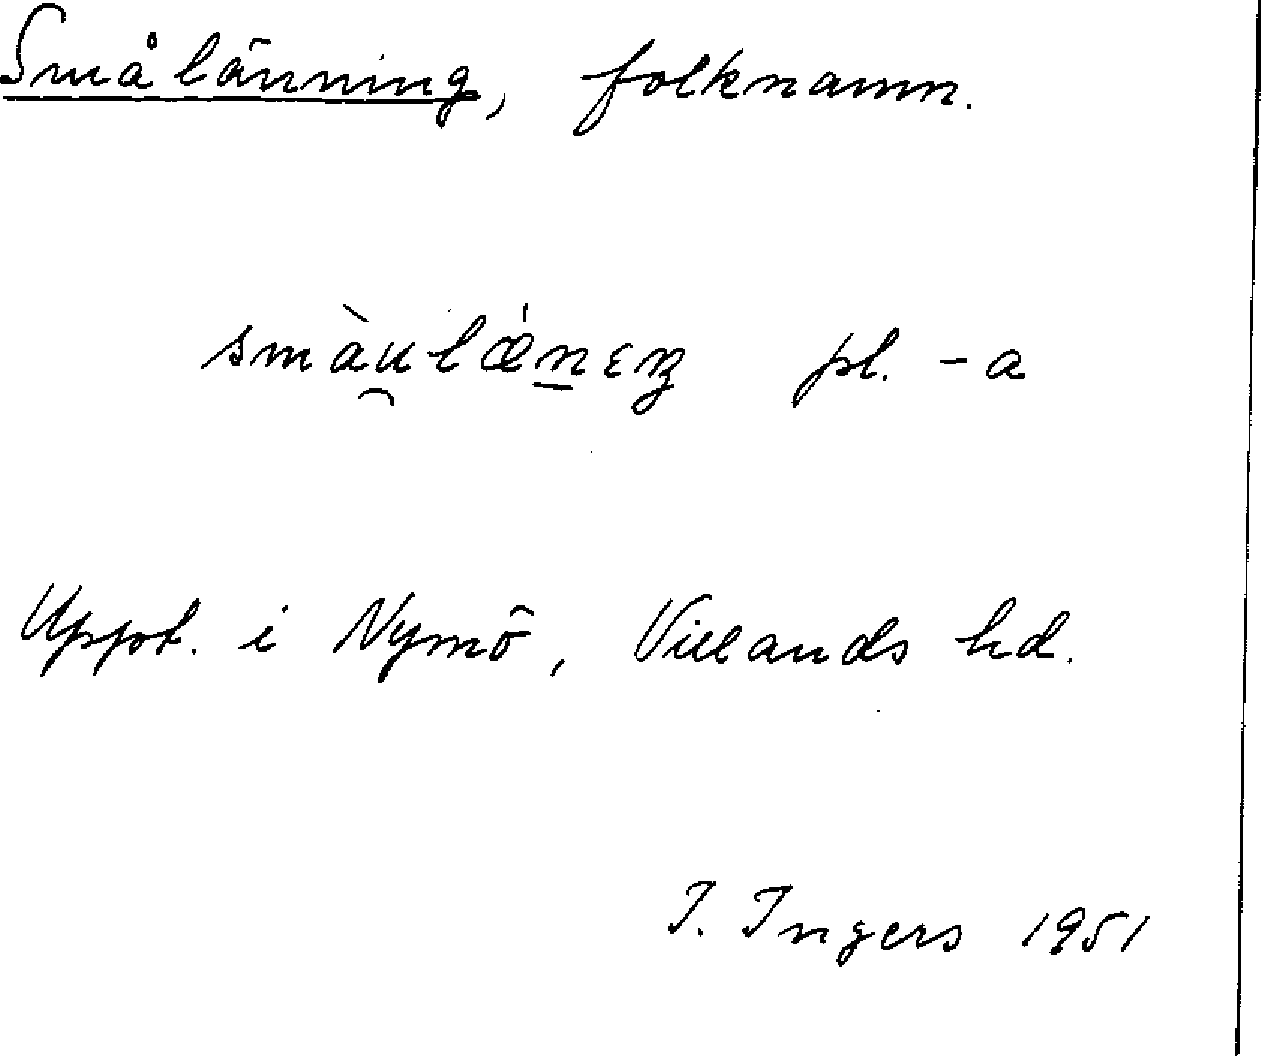 Smålänning, folknamn.
smàu̯lǽn̲ɛŋ pl. -a
Uppt. i Nymö, Villands hd.
I. Ingers 1951